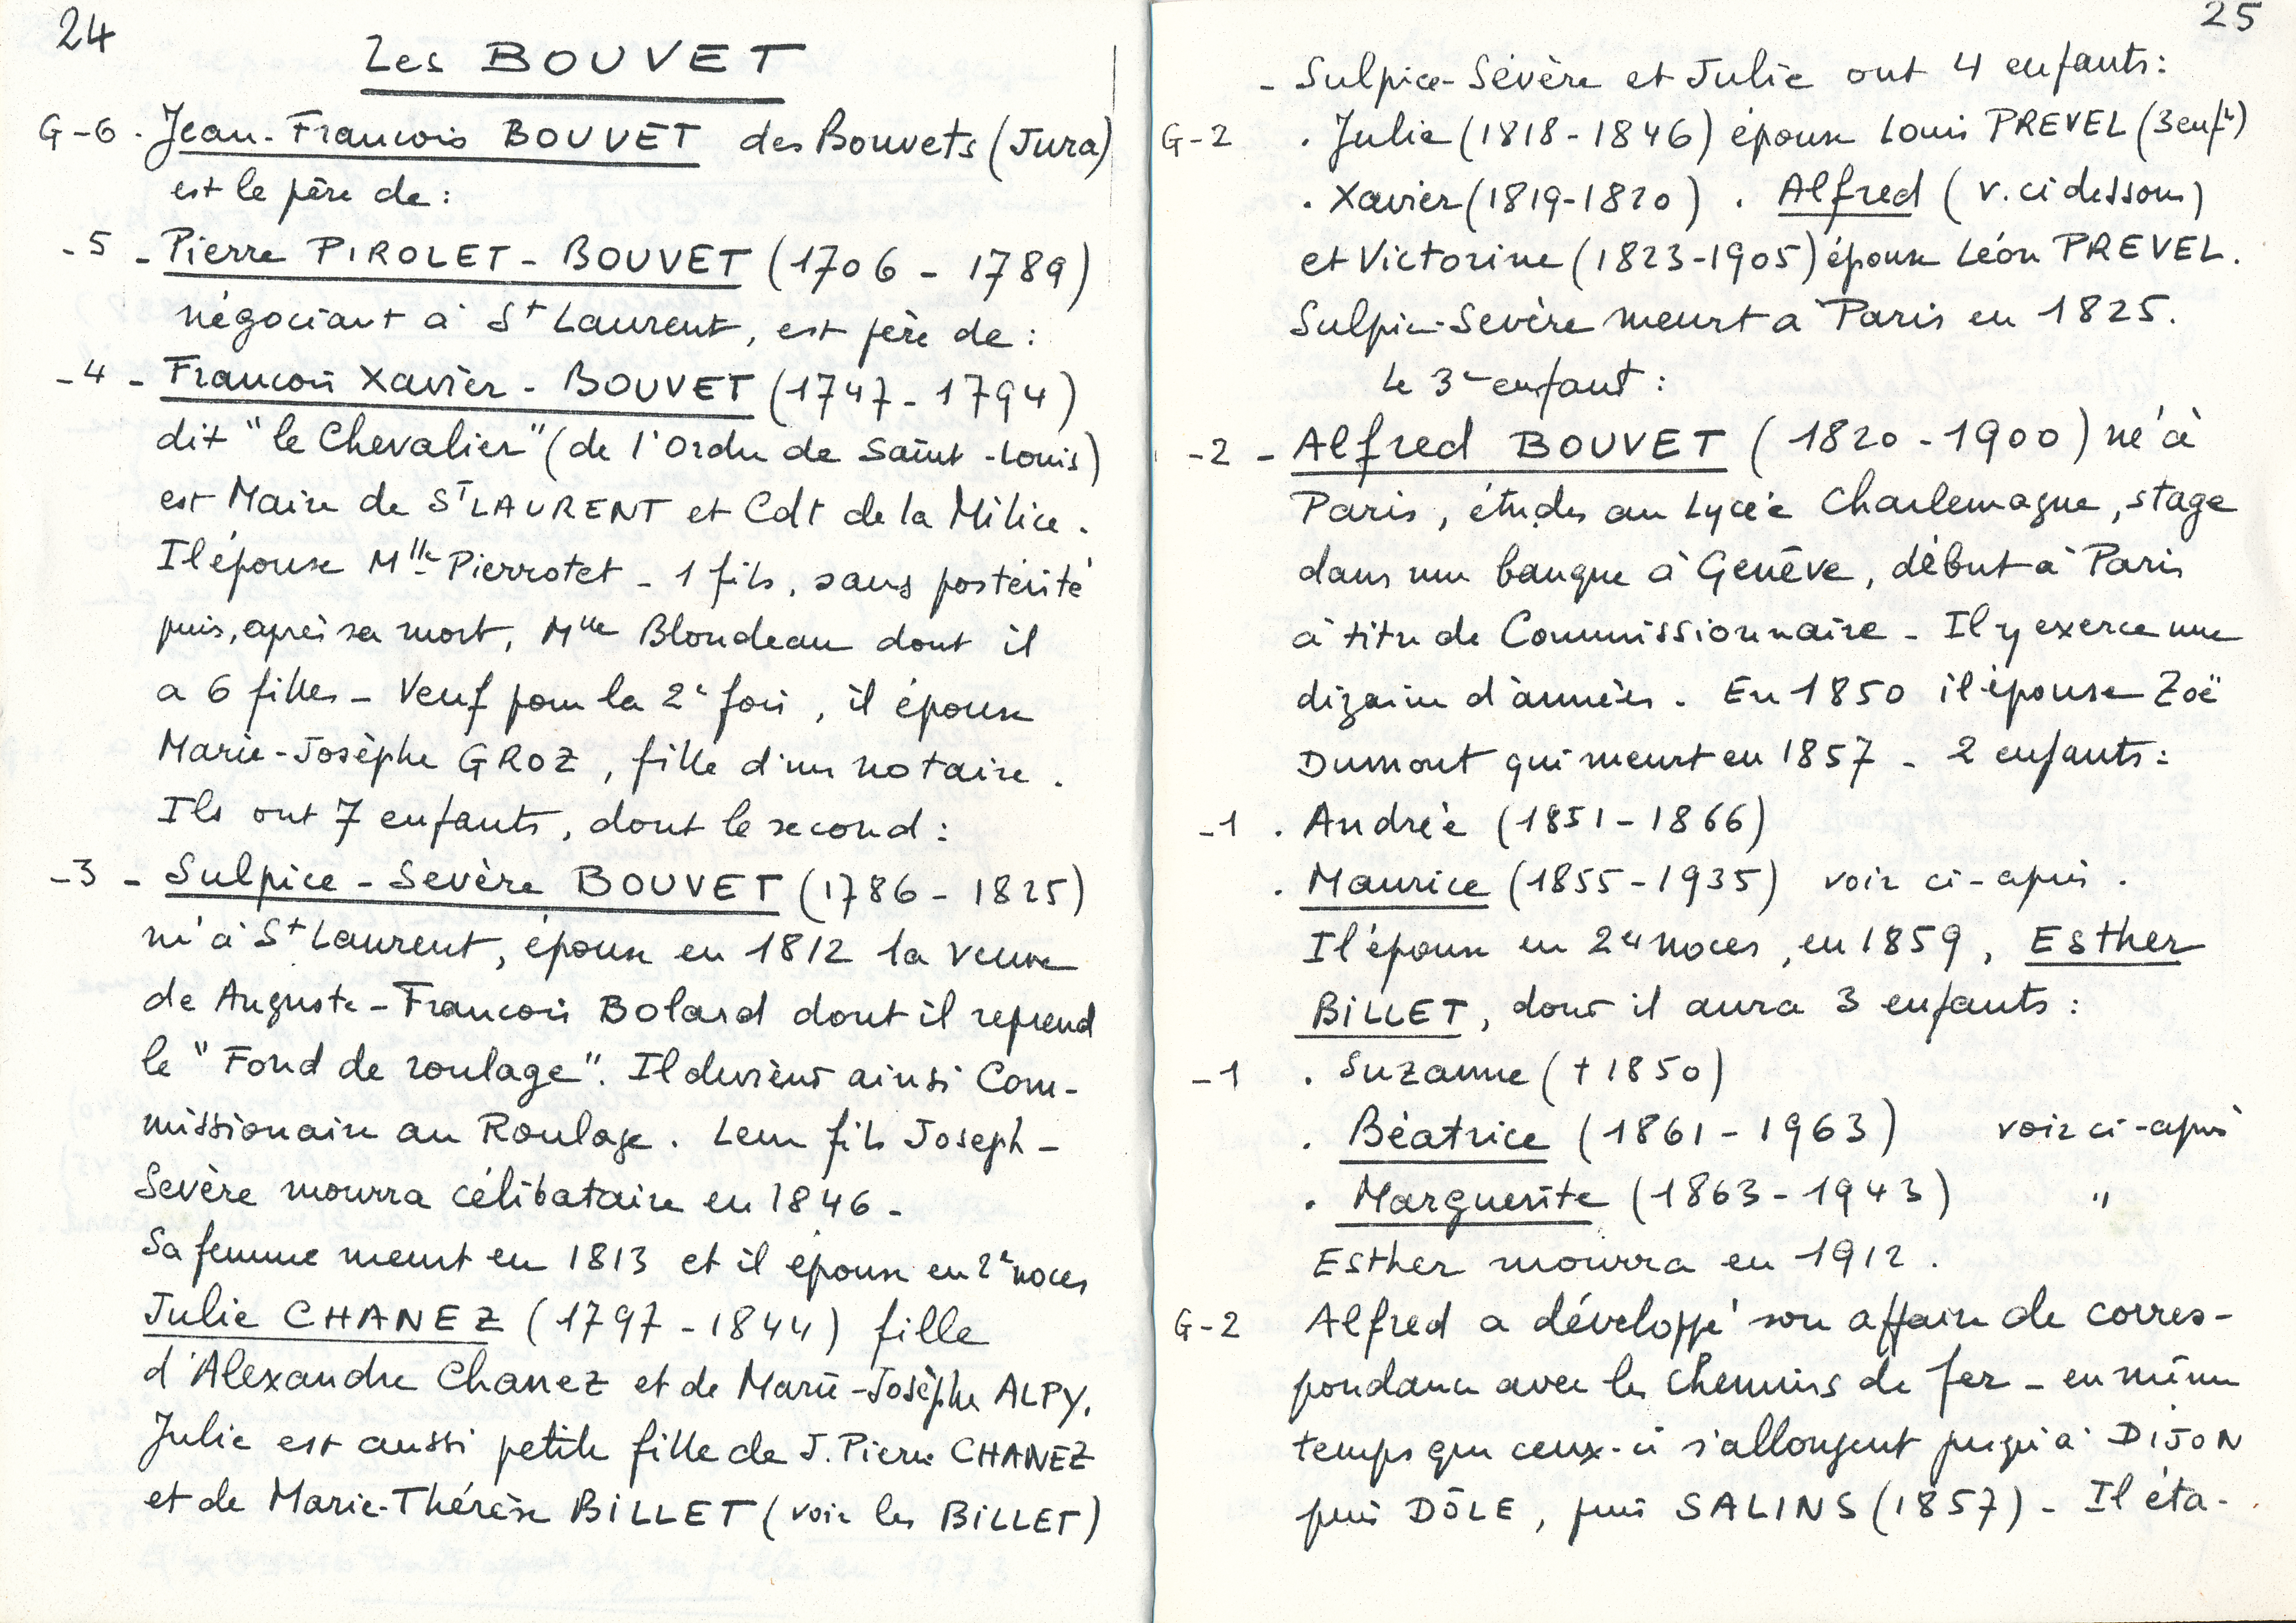 24
Les BOUVET
G-6 . Jean-Francois BOUVET des Bouvets (Jura)
est le père de :
-5 - Pierre PIROLET - BOUVET (1706 - 1789)
négociant à St Laurent, est père de :
-4 - Francois Xavier - BOUVET (1747 - 1794)
dit "le Chevalier" (de l'Ordre de Saint-Louis)
est Maire de ST LAURENT et Cdt de la Milice.
Il épouse Mlle Pierrotet - 1 fils, sans postérité
puis, après sa mort, Mlle Blondeau dont il
a 6 filles - Veuf pour la 2e fois, il épouse
Marie-Josèphe GROZ, fille d'un notaire.
Ils ont 7 enfants, dont le second :
-3 - Sulpice - Sevère BOUVET (1786 - 1825)
né à St Laurent, épouse en 1812 la veuve
de Auguste-Francois Bolard dont il reprend
le "Fond de roulage". Il devient ainsi Com-
missionaire au Roulage. Leur fils Joseph-
Sevère mourra célibataire en 1846 -
Sa femme meurt en 1813 et il épouse en 2e noces
Julie CHANEZ (1797 - 1844) fille
d'Alexandre Chanez et de Marie-Josèphe ALPY.
Julie est aussi petite fille de J. Pierre CHANEZ
et de Marie-Thérèse BILLET (voir les BILLET)
25
- Sulpice-Sévère et Julie ont 4 enfants :
G-2 . Julie (1818 - 1846) épouse Louis PREVEL (3 enfts)
. Xavier (1819-1820) . Alfred (v. ci dessous)
et Victorine (1823-1905) épouse Léon PREVEL.
Sulpice-Sevère meurt à Paris en 1825.
Le 3e enfant :
-2 - Alfred BOUVET (1820 - 1900) né à
Paris, études au Lycée Charlemagne, stage
dans une banque à Genève, début à Paris
à titre de Commissionnaire - Il y exerce une
dizaine d'années. En 1850 il épouse Zoë
Dumont qui meurt en 1857 - 2 enfants :
-1 . Andrée (1851 - 1866)
. Maurice (1855 - 1935) voir ci-après.
Il épouse en 2es noces, en 1859, Esther
BILLET, dont il aura 3 enfants :
-1 . Suzanne († 1850)
. Béatrice (1861 - 1963) voir ci-après
. Marguerite (1863 - 1943) "
Esther mourra en 1912.
G-2 Alfred a développé son affaire de corres-
pondance avec les Chemins de fer - en même
temps que ceux-ci s'allongent jusqu'à DIJON
puis DÔLE, puis SALINS (1857) - Il éta-